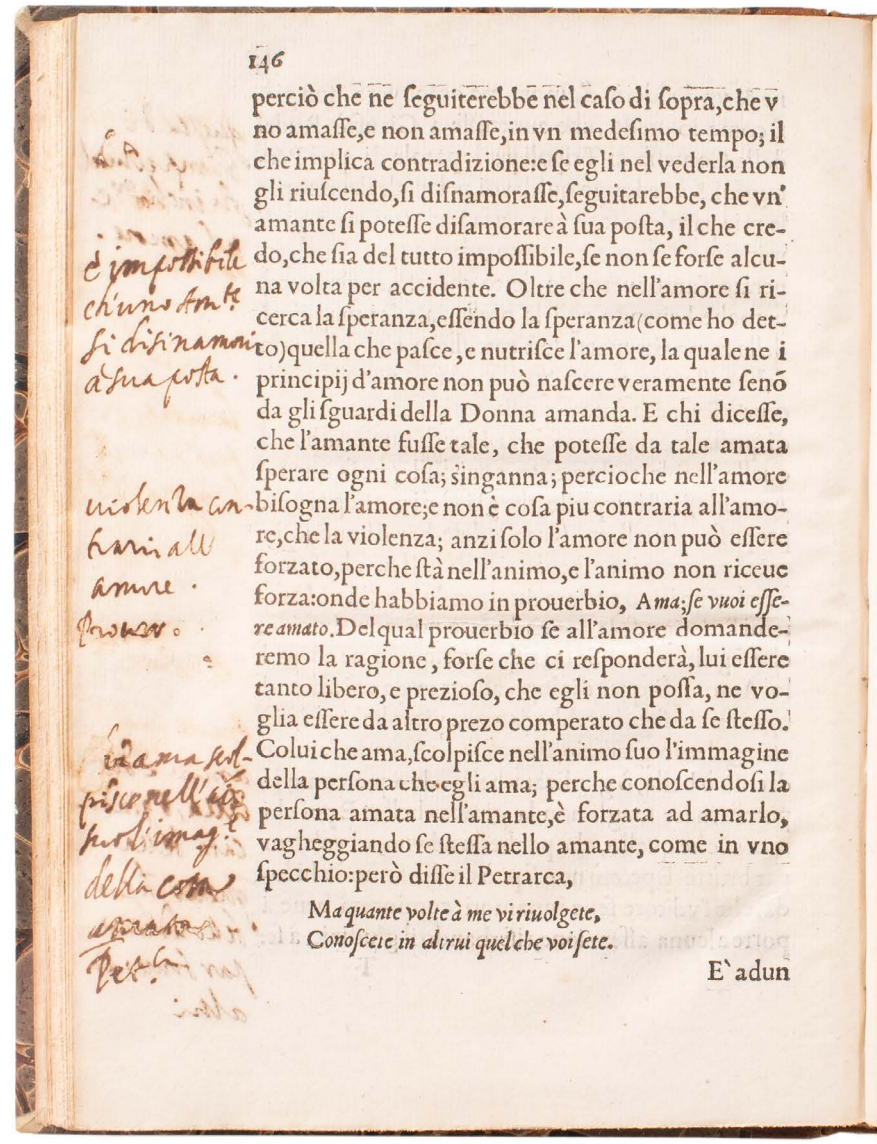 146
perciò che ne ſeguiterebbe nel caſo di ſopra,che v
no amaſſe,e non amaſſe,in vn medeſimo tempo; il
che implica contradizione:e ſe egli nel vederla non
gli riuſcendo,ſi diſnamoraſſe,ſeguitarebbe, che vn'
amante ſi poteſſe diſamorare à ſua poſta, il che cre-
do,che ſia del tutto impoſſibile,ſe non ſe forſe alcu-
na volta per accidente. Oltre che nell'amore ſi ri-
cerca la ſperanza,eſſendo la ſperanza(come ho det-
to)quella che paſce, e nutriſce l'amore, la quale ne i
principij d'amore non può naſcere veramente ſenõ
da gli ſguardi della Donna amanda. E chi diceſſe,
che l'amante fuſſe tale, che poteſſe da tale amata
ſperare ogni coſa; singanna; percioche nell'amore
biſogna l'amore;e non è coſa piu contraria all'amo-
re,che la violenza; anzi ſolo l'amore non può eſſere
forzato,perche ſtà nell'animo,e l'animo non riceue
forza:onde habbiamo in prouerbio, Ama;ſe vuoi eſſe-
re amato. Del qual prouerbio ſe all'amore domande-
remo la ragione, forſe che ci reſponderà, lui eſſere
tanto libero, e prezioſo, che egli non poſſa, ne vo-
glia eſſere da altro prezo comperato che da ſe ſteſſo.
Colui che ama,ſcolpiſce nell'animo ſuo l'immagine
della perſona che egli ama; perche conoſcendoſi la
perſona amata nell'amante,è forzata ad amarlo,
vagheggiando ſe ſteſſa nello amante, come in vno
ſpecchio:però diſſe il Petrarca,
Ma quante volte à me vi riuolgete,
Conoſcete in altrui quel che voi ſete.
E`adun
è impossibile
ch'uno Am.te
si disinamori
à sua posta.
violenza con-
traria all
amore.
Prouer.
ama scol-
pisce nell'
suo l'imag.e
della cosa
Pet.